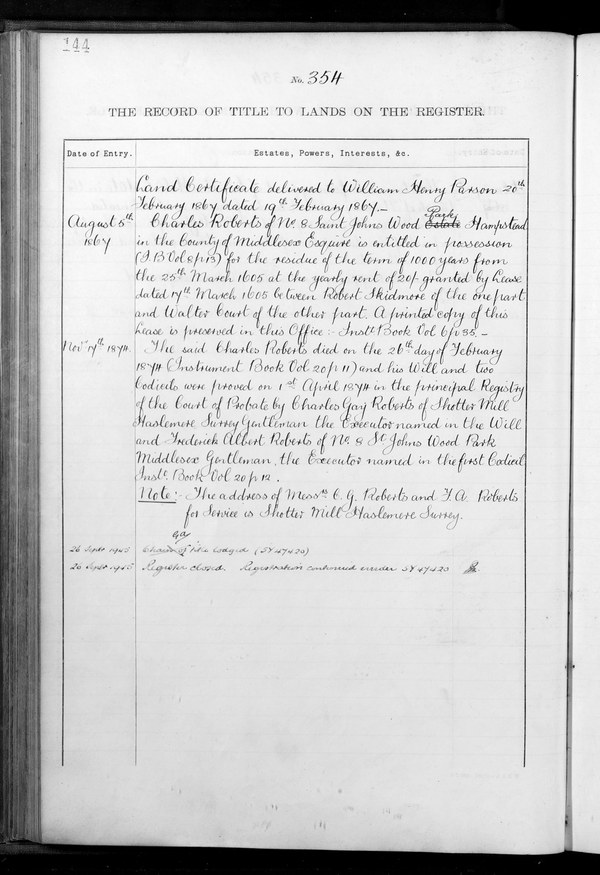 144
No. 354
THE RECORD OF TITLE TO LANDS ON THE REGISTER.
Date of Entry. Estates, Powers, Interests, &c.
Land Certificate delivered to William Henry Parson 20th
February 1867 dated 19th February 1867._
August 5th 1867 Charles Roberts of No. 8 Saint Johns Wood Estate Park Hampstead
in the County of Middlesex Esquire is entitled in possession
(I.B Vol 8 p 13) for the residue of the term of 1000 years from
the 25th March 1605 at the yearly rent of 20/- granted by Lease
dated 17th March 1605 between Robert Skidmore of the one part
and Walter Court of the other part. A printed copy of this
Lease is preserved in this Office :- Inst. Book Vol 6 p 35._
Novr. 17th 1874. The said Charles Roberts died on the 26th day of February
1874 (Instrument Book Vol 20 p 11) and his Will and two
Codicils were proved on 1st April 1874 in the principal Registry
of the Court of Probate by Charles Gay Roberts of Shotter Mill
Haslemere Surrey Gentleman the Executor named in the Will
and Frederick Albert Roberts of No. 8 St Johns Wood Park
Middlesex Gentleman, the Executor named in the first Codicil
Inst. Book Vol 20 p 12.
Note:- The address of Messrs C. G. Roberts and F. A. Roberts
for Service is Shotter Mill Haslemere Surrey.
26 Sept 1945 of title lodged (SY 47420)
26 Sept 1945 Register closed. Registration continued under SY 47420